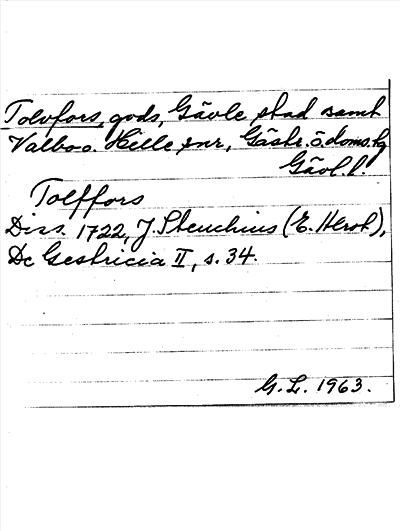 Tolvfors, gods, Gävle stad samt
Valbo o. Hille snr, Gästr. ö. doms. hg
Gävl. l.
Tolffors
Diss. 1722, J. Stenchius (E. Alrot),
De Gestricia II, s. 34.
G. L. 1963.